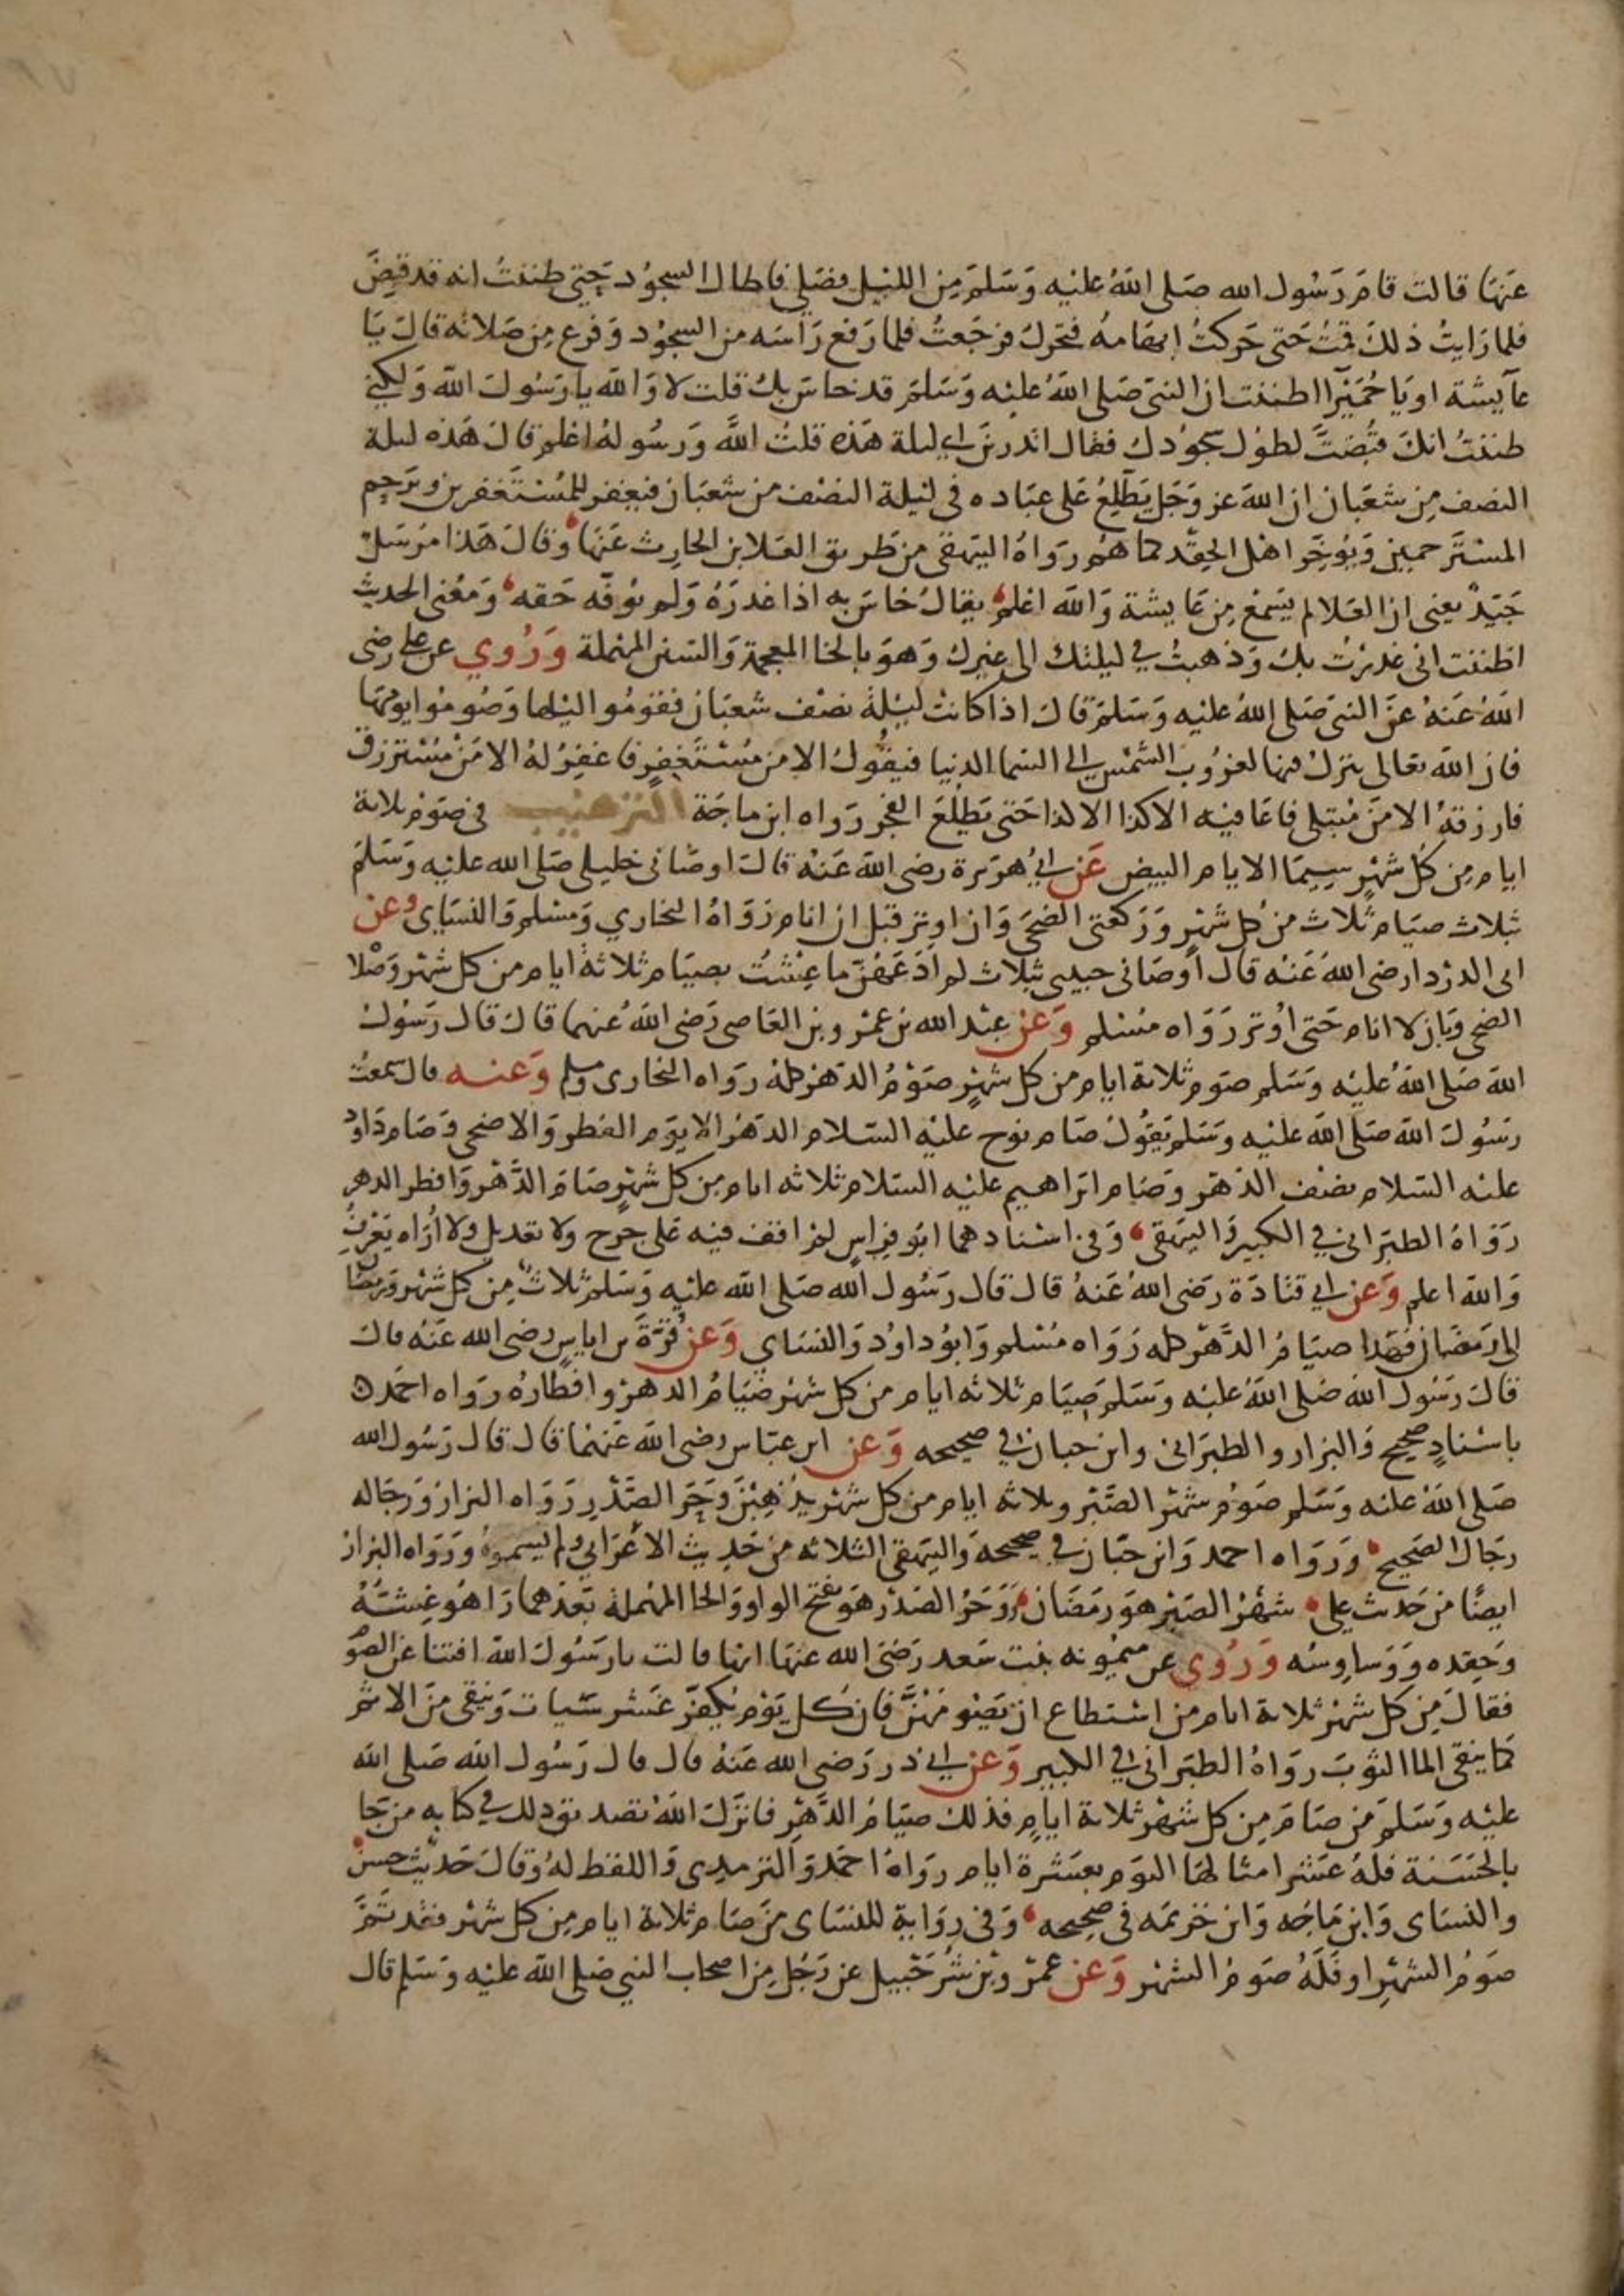 عنها قالت قام رسول الله صلى الله عليه وسلم من الليل فصلى فاطال السجود حتى ظننت انه قد قبض
فلما رايت ذلك قمت حتى حركت ابهامه فتحرك فرجعت فلما رفع راسه من السجود وفرغ من صلاته قال يا
عآيشة او يا حميرا اظننت ان النبي صلى الله عليه وسلم قد خاس بك قلت لا والله يا رسول الله ولكني
ظننت انك قبضت لطول سجودك فقال اتدرين اي ليلة هذه قلت الله ورسوله اعلم قال هذه ليلة
النصف من شعبان ان الله عز وجل يطلع على عباده في ليلة النصف من شعبان فيغفر للمستغفرين ويرحم
المسترحمين ويؤخر اهل الحقد كما هم رواه البيهقي من طريق العلا بن الحارث عنها وقال هذا مرسل
جيد يعني ان العلا لم يسمع من عايشة والله اعلم يقال خاس به اذا غدره ولم يوفه حقه ومعنى الحديث
اظننت اني غدرت بك وذهبت في ليلتك الى غيرك وهو بالخا المعجمة والسين المهملة وروي عن علي رضي
الله عنه عن النبي صلى الله عليه وسلم قال اذا كانت ليلة نصف شعبان فقوموا ليلها وصوموا يومها
فان الله تعالى ينزل فيها لغروب الشمس الى السما الدنيا فيقول الا من مستغفر فاغفر له الا من مسترزق
فارزقه الا من مبتلى فاعافيه الا كذا الا كذا حتى يطلع الفجر رواه ابن ماجة الترهيب في صوم ثلاثة
ايام من كل شهر سيما الايام البيض عن ابي هريرة رضي الله عنه قال اوصاني خليلي صلى الله عليه وسلم
بثلاث صيام ثلاث من كل شهر وركعتي الضحى وان اوتر قبل ان انام رواه البخاري ومسلم والنساي وعن
ابي الدردا رضي الله عنه قال اوصاني حبيبي بثلاث لم ادعهن ما عشت بصيام ثلاثة ايام من كل شهر وصلاة
الضحى وبان لا انام حتى اوتر رواه مسلم وعن عبد الله بن عمرو بن العاصي رضي الله عنهما قال قال رسول
الله صلى الله عليه وسلم صوم ثلاثة ايام من كل شهر صوم الدهر كله رواه البخاري ومسلم وعنه قال سمعت
رسول الله صلى الله عليه وسلم يقول صام نوح عليه السلام الدهر الا يوم الفطر والاضحى وصام داود
عليه السلام نصف الدهر وصام ابراهيم عليه السلام ثلاثه ايام من كل شهر صام الدهر وافطر الدهر
رواه الطبراني في الكبير والبيهقي وفي اسنادهما ابو فراس لم اقف فيه على جرح ولا تعديل ولا اراه يعرف
والله اعلم وعن ابي قتادة رضي الله عنه قال قال رسول الله صلى الله عليه وسلم ثلاث من كل شهر ورمضان
الى رمضان فهذا صيام الدهر كله رواه مسلم وابو داود والنساي وعن قرة بن اياس رضي الله عنه قال
قال رسول الله صلى الله عليه وسلم صيام ثلاثه ايام من كل شهر صيام الدهر وافطاره رواه احمد
باسناد صحيح والبزار والطبراني وابن حبان في صحيحه وعن ابن عباس رضي الله عنهما قال قال رسول الله
صلى الله عليه وسلم صوم شهر الصبر وثلاثه ايام من كل شهر يذهبن وحر الصدر رواه البزار ورجاله
رجال الصحيح ورواه احمد وابن حبان في صحيحه والبيهقي الثلاثه من حديث الاعرابي ولم يسموه ورواه البزار
ايضا من حديث علي شهر الصبر هو رمضان ووحر الصدر هو بفتح الواو والحا المهملة بعدهما را هو غشه
وحقده ووساوسه وروي عن ميمونه بنت سعد رضي الله عنها انها قالت يا رسول الله افتنا عن الصوم
فقال من كل شهر ثلاثة ايام من استطاع ان يصومهن فان كل يوم يكفر عشر سيات وينقي من الاثم
كما ينقي الما الثوب رواه الطبراني في الكبير وعن ابي ذر رضي الله عنه قال قال رسول الله صلى الله
عليه وسلم من صام من كل شهر ثلاثة ايام فذلك صيام الدهر فانزل الله تصديق ذلك في كتابه من جا
بالحسنة فله عشر امثالها اليوم بعشرة ايام رواه احمد والترمذي واللفظ له وقال حديث حسن
والنساي وابن ماجه وابن خزيمه في صحيحه وفي رواية للنساي من صام ثلاثة ايام من كل شهر فقد تم
صوم الشهر او فله صوم الشهر وعن عمرو بن شرحبيل عن رجل من اصحاب النبي صلى الله عليه وسلم قال